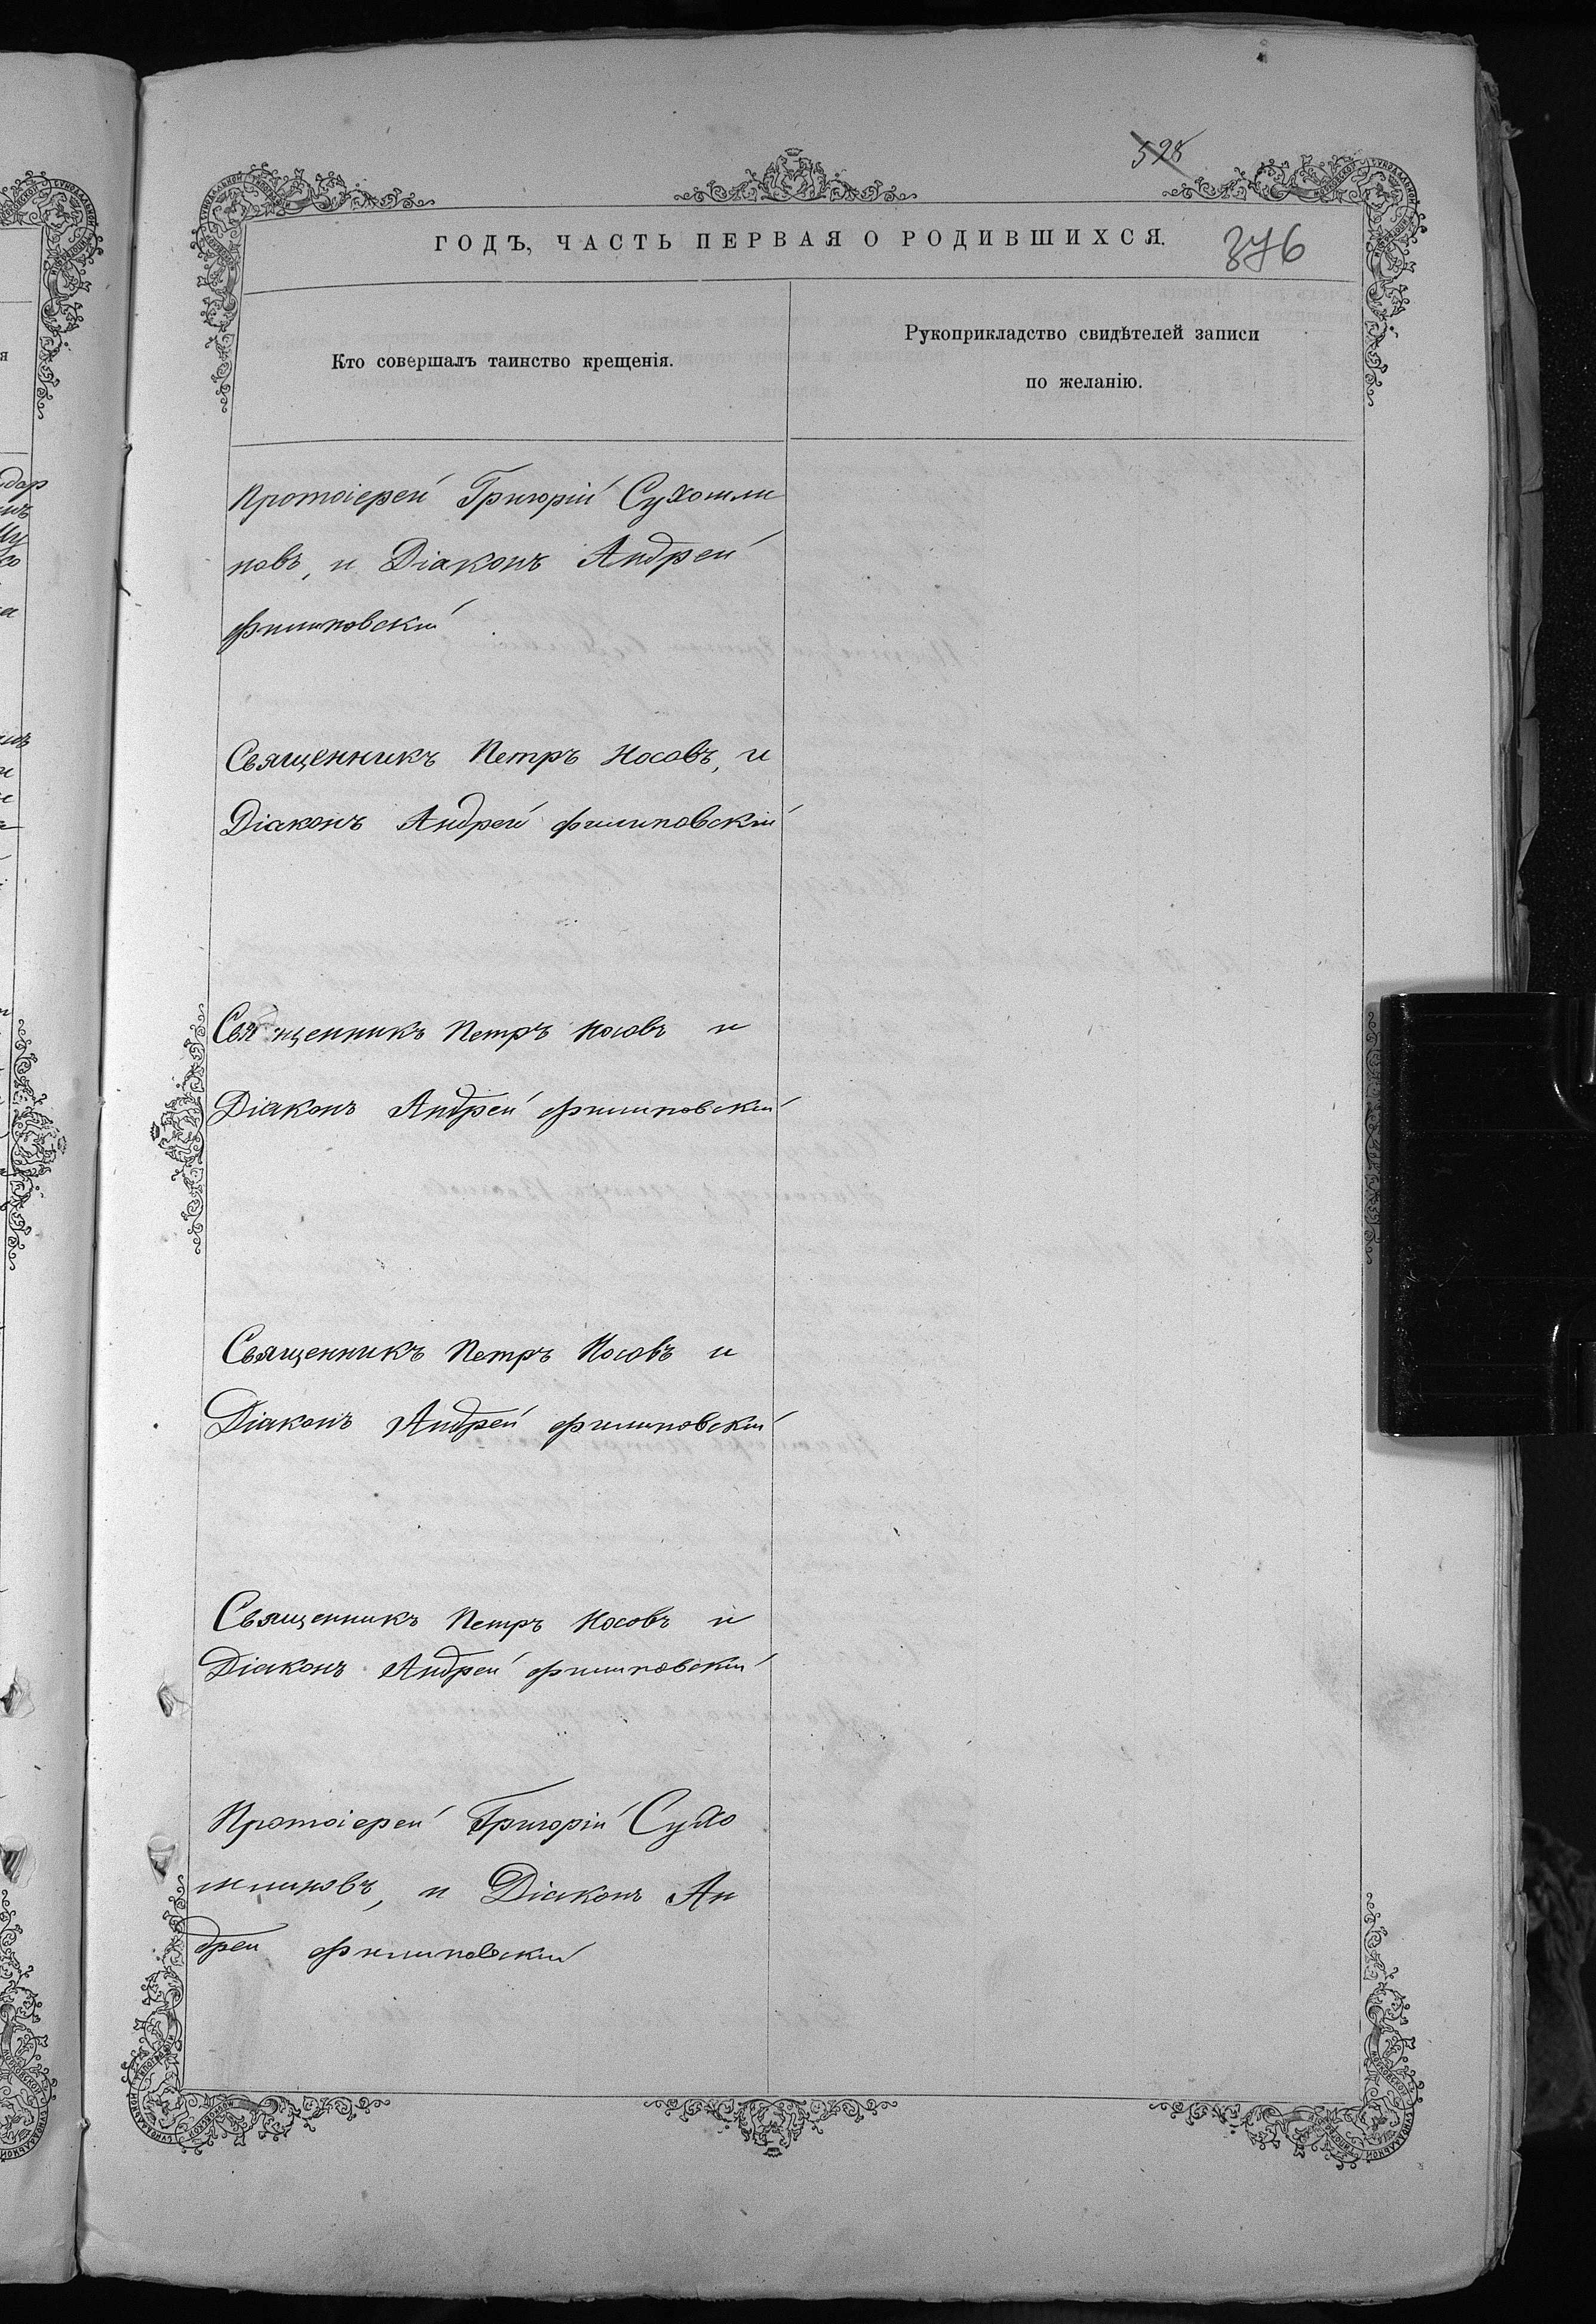 528
376
ГОДЪ, ЧАСТЬ ПЕРВАЯ О РОДИВШИХСЯ.
Кто совершалъ таинство крещенія.
Рукоприкладство свидѣтелей записи
по желанію.
Протоіерей Григорій Сухомли
новъ, и Діаконъ Андрей
Филиповскій
Священникъ Петръ Носовъ, и
Діаконъ Андрей Филиповскій
Священникъ Петръ Носовъ и
Діаконъ Андрей Филиповскій
Священникъ Петръ Носовъ и
Діаконъ Андрей Филиповскій
Священникъ Петръ Носовъ и
Діаконъ Андрей Филиповскій
Протоіерей Григорій Сухо
млиновъ, и Діаконъ Ан
дрей Филиповскій